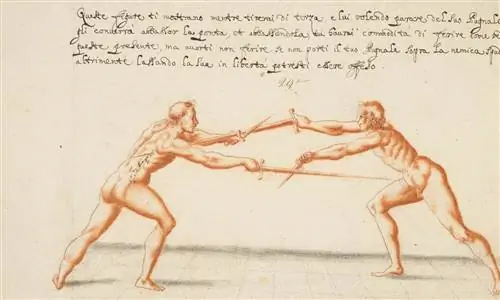 Queste figure ti mostrano mentre tirerai di terza, e lui volendo parare del suo Pugnale
gli converrà abbassar la ponta, et abbassandola, tu haverai commodità di ferire come
queste presente, ma avorti non ferire se non porti il tuo Pugnale sopra la nemica
altrimente lassando la sua in libertà potresti essere offeso.
29